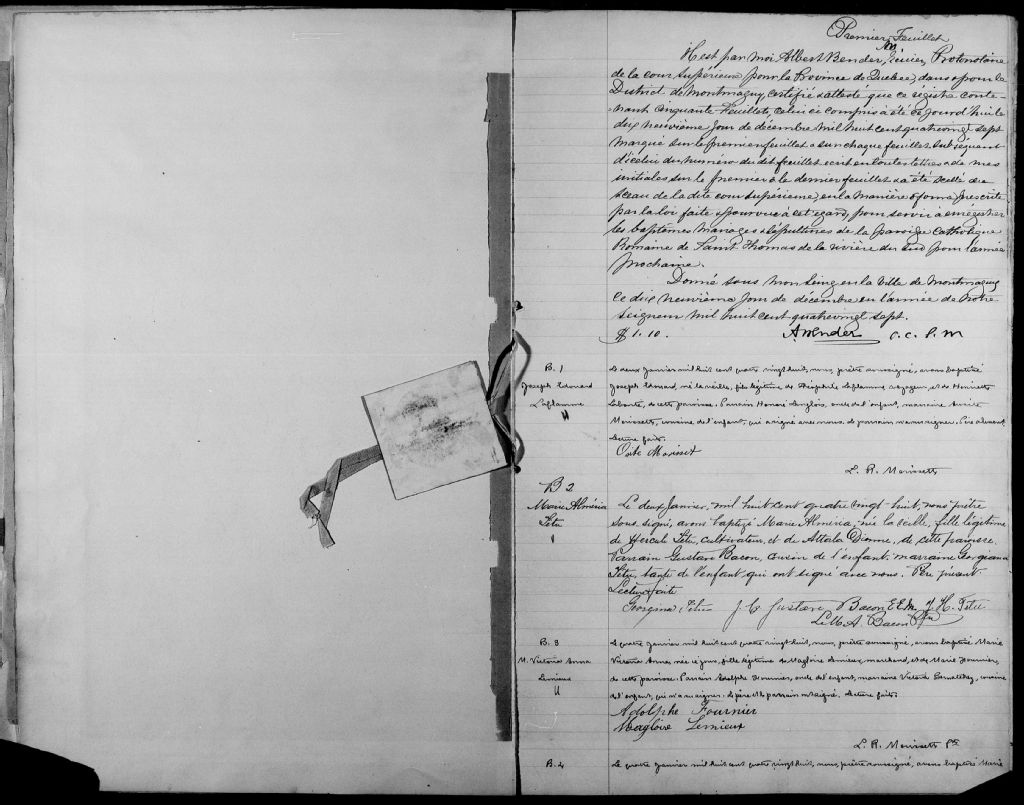 Premier Feuillet
Il est par moi Albert Bender, Ecuier, Protonotaire
de la cour supérieure pour la Province de Quebec, dans & pour le
District de Montmagny, certifié & attesté que ce registre conte-
-nant cinquante Feuillets, celui ci compris a été ce jourd'hui le
dix neuvième jour de décembre mil huit cent quatrevingt sept
marqué sur le premier feuillet & sur chaque feuillet subséquent
d'icelui du numéro du dit feuillet écrit en toutes lettres & de mes
initiales sur le premier & le dernier feuillet & a été scellé du
sceau de la dite cour supérieure, en la manière & forme prescrite
par la loi faite & pourvue à cet égard, pour servir à enrégistrer
les baptêmes mariages & sépultures de la paroisse Catholique
Romaine de Saint Thomas de la rivière du Sud pour l'année
prochaine.
Donné sous mon seing en la Ville de Montmagny
ce dix neuvième jour de décembre en l'année de notre
seigneur mil huit cent quatrevingt sept.
$1.10. A Bender c.c.s.m
B. 1
Joseph Edouard
Laflamme
Le deux Janvier mil huit cent quatre vingt huit, nous, prêtre soussigné, avons baptisé
Joseph Edouard, né la veille, fils légitime de Théophile Laflamme voyageur, et de Henriette
de cette paroisse. Parrain Honoré Langlois, oncle de l'enfant, marraine
Morissette, cousine de l'enfant, qui a signé avec nous, le parrain n'a su signer. Père absent.
Lecture faite.
Morisset
L. R. Morissette
B 2
Marie Alméria
Tétu
Le deux Janvier, mil huit cent quatre vingt huit, nous prêtre
sous signé, avons baptizé Marie Alméria, née la veille, fille légitime
de Hercule Tétu, cultivateur, et de Attala Dionne, de cette paroisse.
Parrain Gustave Bacon, cousin de l'enfant marraine Georgiana
Tétu, tante de l'enfant qui ont signé avec nous. Père présent.
Lecture faite
Georgina Tétu J. C. Gustave Bacon E.E.M. J. H. Tétu
L. M. A. Bacon Ptre
B. 3
M. Victoria Anna
Lemieux
Le quatre Janvier mil huit cent quatre vingt huit, nous, prêtre soussigné, avons baptisé Marie
Victoria Anna, née ce jour, fille légitime de Magloire Lemieux, marchand, et de Marie Fournier,
de cette paroisse. Parrain Adolphe Fournier, oncle de l'enfant, marraine Victoria cousine
de l'enfant, qui n'a su signer. Le père et le parrain ont signé. Lecture faite.
Adolphe Fournier
Magloire Lemieux
L. R. Morissette Ptre
B. 4
Le quatre Janvier mil huit cent quatre vingt huit, nous, prêtre soussigné, avons baptisé Marie